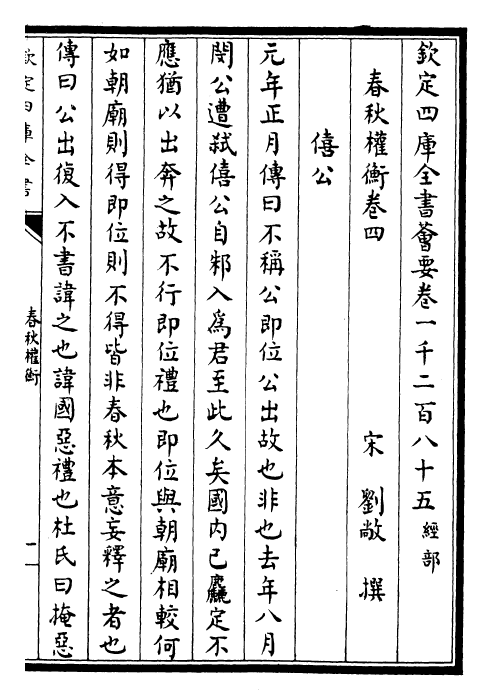 欽定四庫全書薈要卷一千二百八十五經部
春秋權衡卷四
宋 劉敞 撰
僖公
元年正月傳曰不稱公即位公出故也非也去年八月
閔公遭弑僖公自邾入為君至此久矣國内已定不
應猶以出奔之故不行即位禮也即位與朝廟相較何
如朝廟則得即位則不得皆非春秋本意妄釋之者也
傳曰公出復入不書諱之也諱國惡禮也杜氏曰掩惡
欽定四庫全書
春秋權衡
一